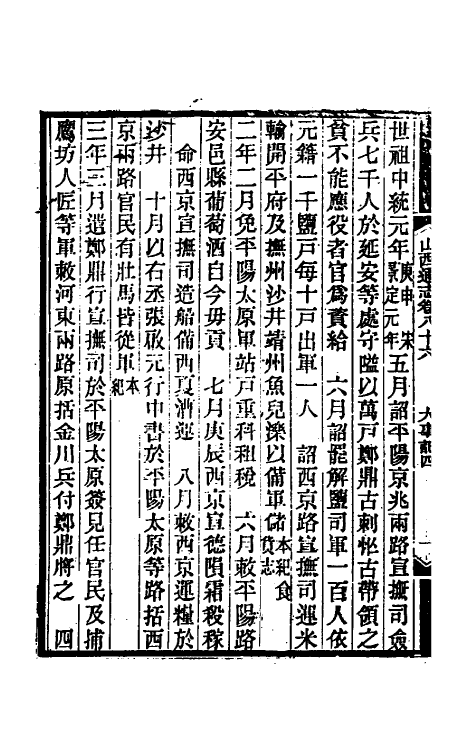 山西通志卷八十六　大事記四
世祖中統元年庚申宋景定元年五月詔平陽京兆兩路宣撫司僉
兵七千人於延安等處守隘以萬戶鄭鼎古剌怌古帶領之
貧不能應役者官爲資給　六月詔罷解鹽司軍一百人依
元籍一千鹽戶每十戶出軍一人　詔西京路宣撫司運米
輸開平府及撫州沙井靖州魚兒濼以備軍儲本紀食貨志
二年二月免平陽太原軍站戶重科租稅　六月敕平陽路
安邑縣葡萄酒自今毋貢　七月庚辰西京宣德隕霜殺稼
命西京宣撫司造船備西夏漕運　八月敕西京運糧於
沙井　十月以右丞張啟元行中書於平陽太原等路括西
京兩路官民有壯馬皆從軍本紀
三年三月遣鄭鼎行宣撫司於平陽太原簽見任官民及捕
鷹坊人匠等軍敕河東兩路原括金川兵付鄭鼎將之　四